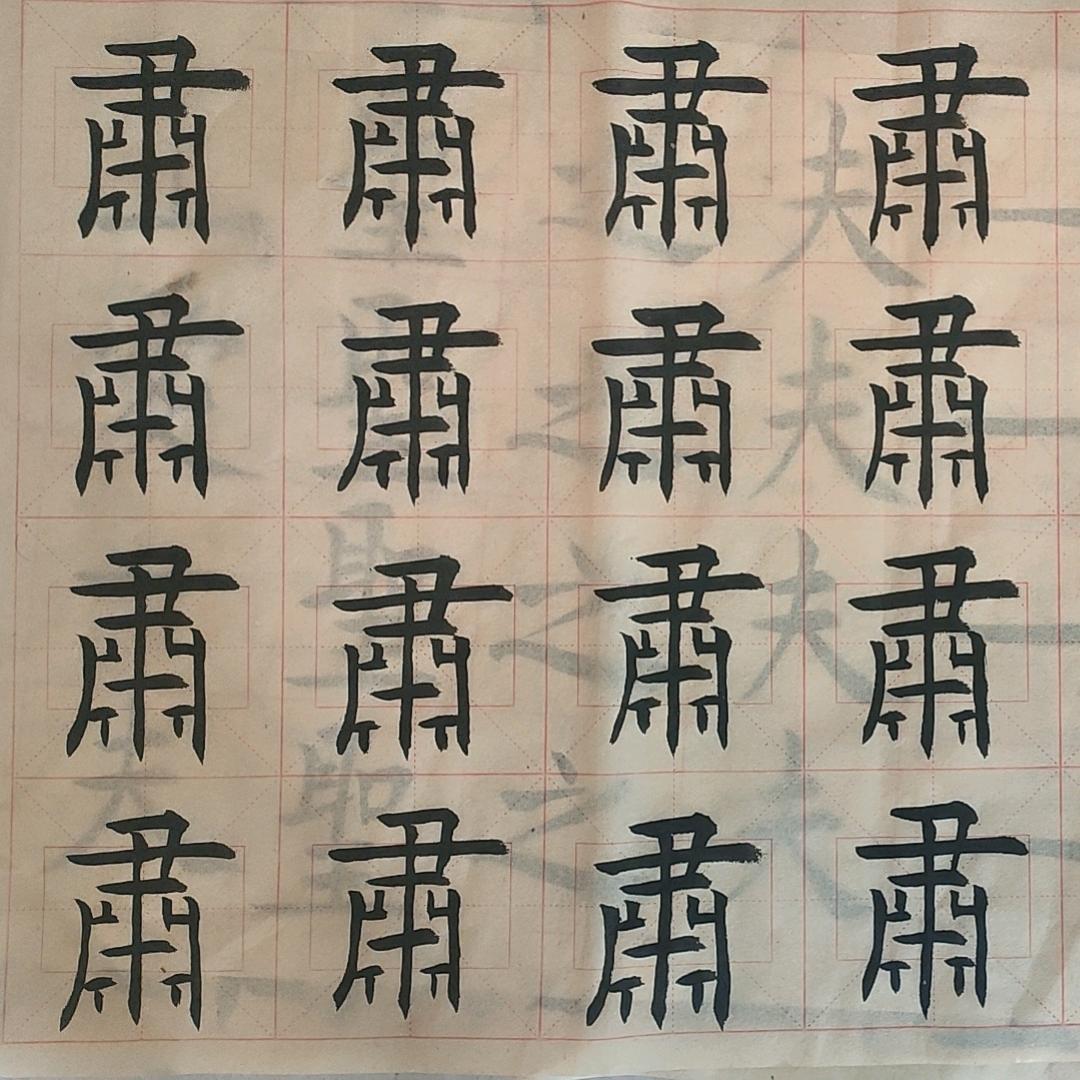 肅肅肅肅
肅肅肅肅
肅肅肅肅
肅肅肅肅